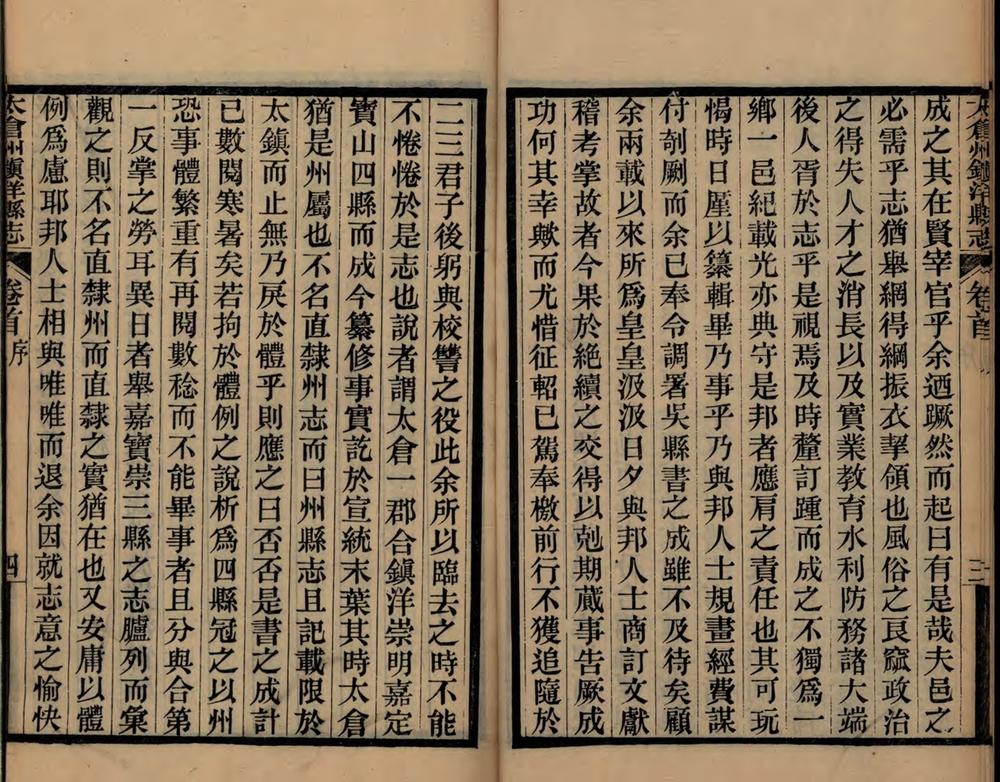 成之其在賢宰官乎余迺蹶然而起曰有是哉夫邑之
必需乎志猶舉綱得綱振衣挈領也風俗之良窳政治
之得失人才之消長以及實業教育水利防務諸大端
後人胥於志乎是視焉及時釐訂踵而成之不獨爲一
鄉一邑紀載光亦典守是邦者應肩之責任也其可玩
愒時日厪以纂輯畢乃事乎乃與邦人士規畫經費謀
付剞劂而余已奉令調署吳縣書之成雖不及待矣顧
余兩載以來所爲皇皇汲汲日夕與邦人士商訂文獻
稽考掌故者今果於絶續之交得以剋期蕆事告厥成
功何其幸歟而尤惜征軺已駕奉檄前行不獲追隨於
太倉州鎮洋縣志 卷首 三
二三君子後躬與校讐之役此余所以臨去之時不能
不惓惓於是志也說者謂太倉一郡合鎮洋崇明嘉定
寶山四縣而成今纂修事實訖於宣統末葉其時太倉
猶是州屬也不名直隸州志而曰州縣志且記載限於
太鎮而止無乃戾於體乎則應之曰否否是書之成計
已數閱寒暑矣若拘於體例之說析爲四縣冠之以州
恐事體繁重有再閱數稔而不能畢事者且分與合第
一反掌之勞耳異日者舉嘉寶崇三縣之志臚列而彙
觀之則不名直隸州而直隸之實猶在也又安庸以體
例爲慮耶邦人士相與唯唯而退余因就志意之愉快
太倉州鎮洋縣志 卷首 序 四